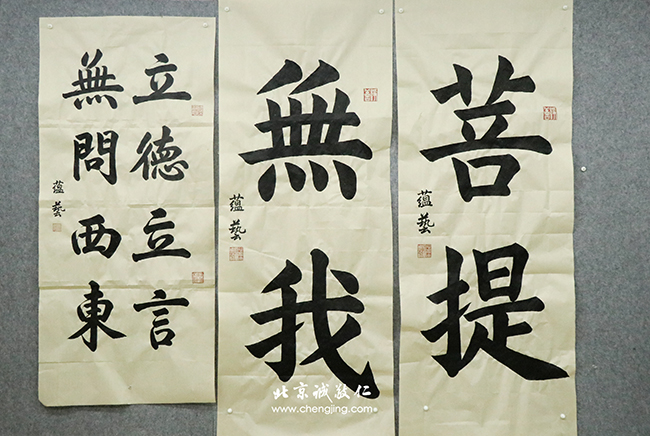 立德立言
無問西東
蘊藝
無我
蘊藝
菩提
蘊藝
北京诚敬仁
www.chengjing.com